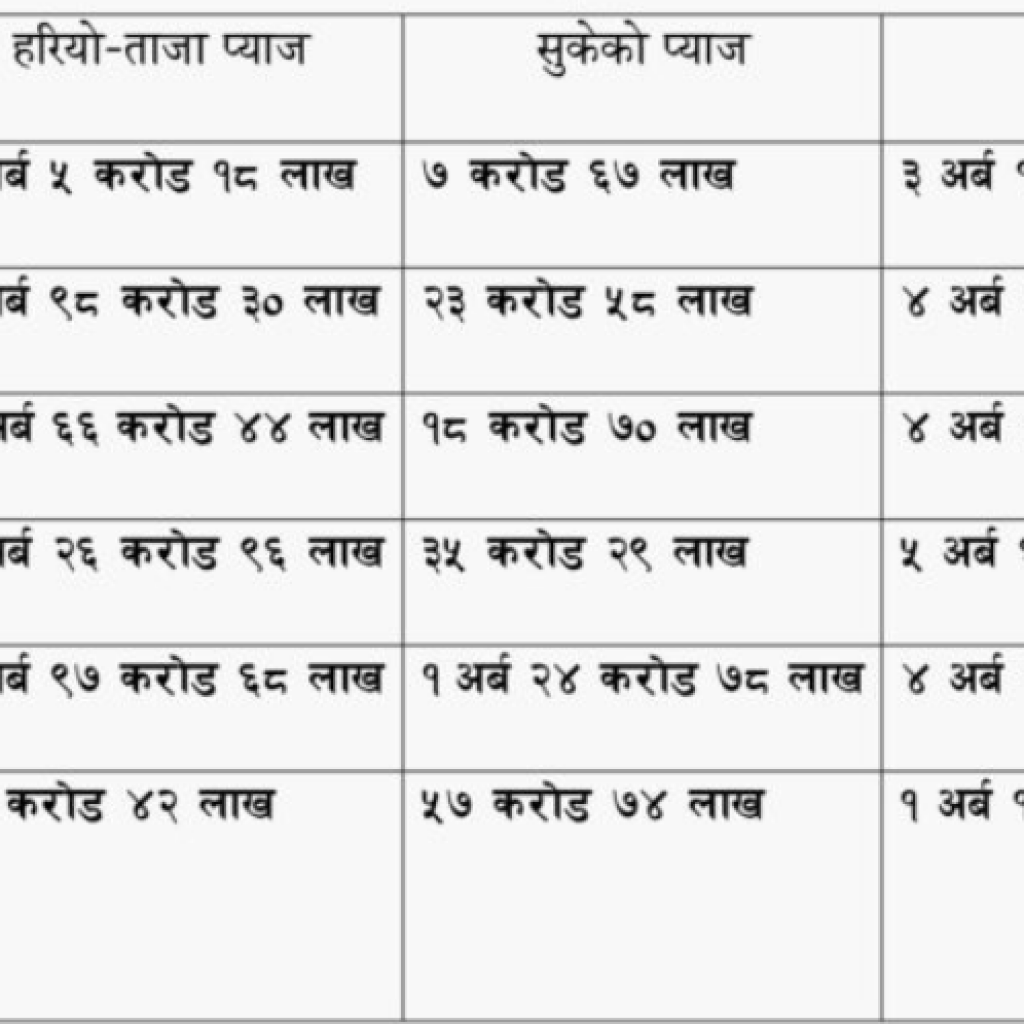 हरियो-ताजा प्याज सुकेको प्याज
५ करोड १८ लाख ७ करोड ६७ लाख ३ अर्ब
९८ करोड ३० लाख २३ करोड ५८ लाख ४ अर्ब
६६ करोड ४४ लाख १८ करोड ७० लाख ४ अर्ब
२६ करोड ९६ लाख ३५ करोड २९ लाख ५ अर्ब
९७ करोड ६८ लाख १ अर्ब २४ करोड ७८ लाख ४ अर्ब
करोड ४२ लाख ५७ करोड ७४ लाख १ अर्ब